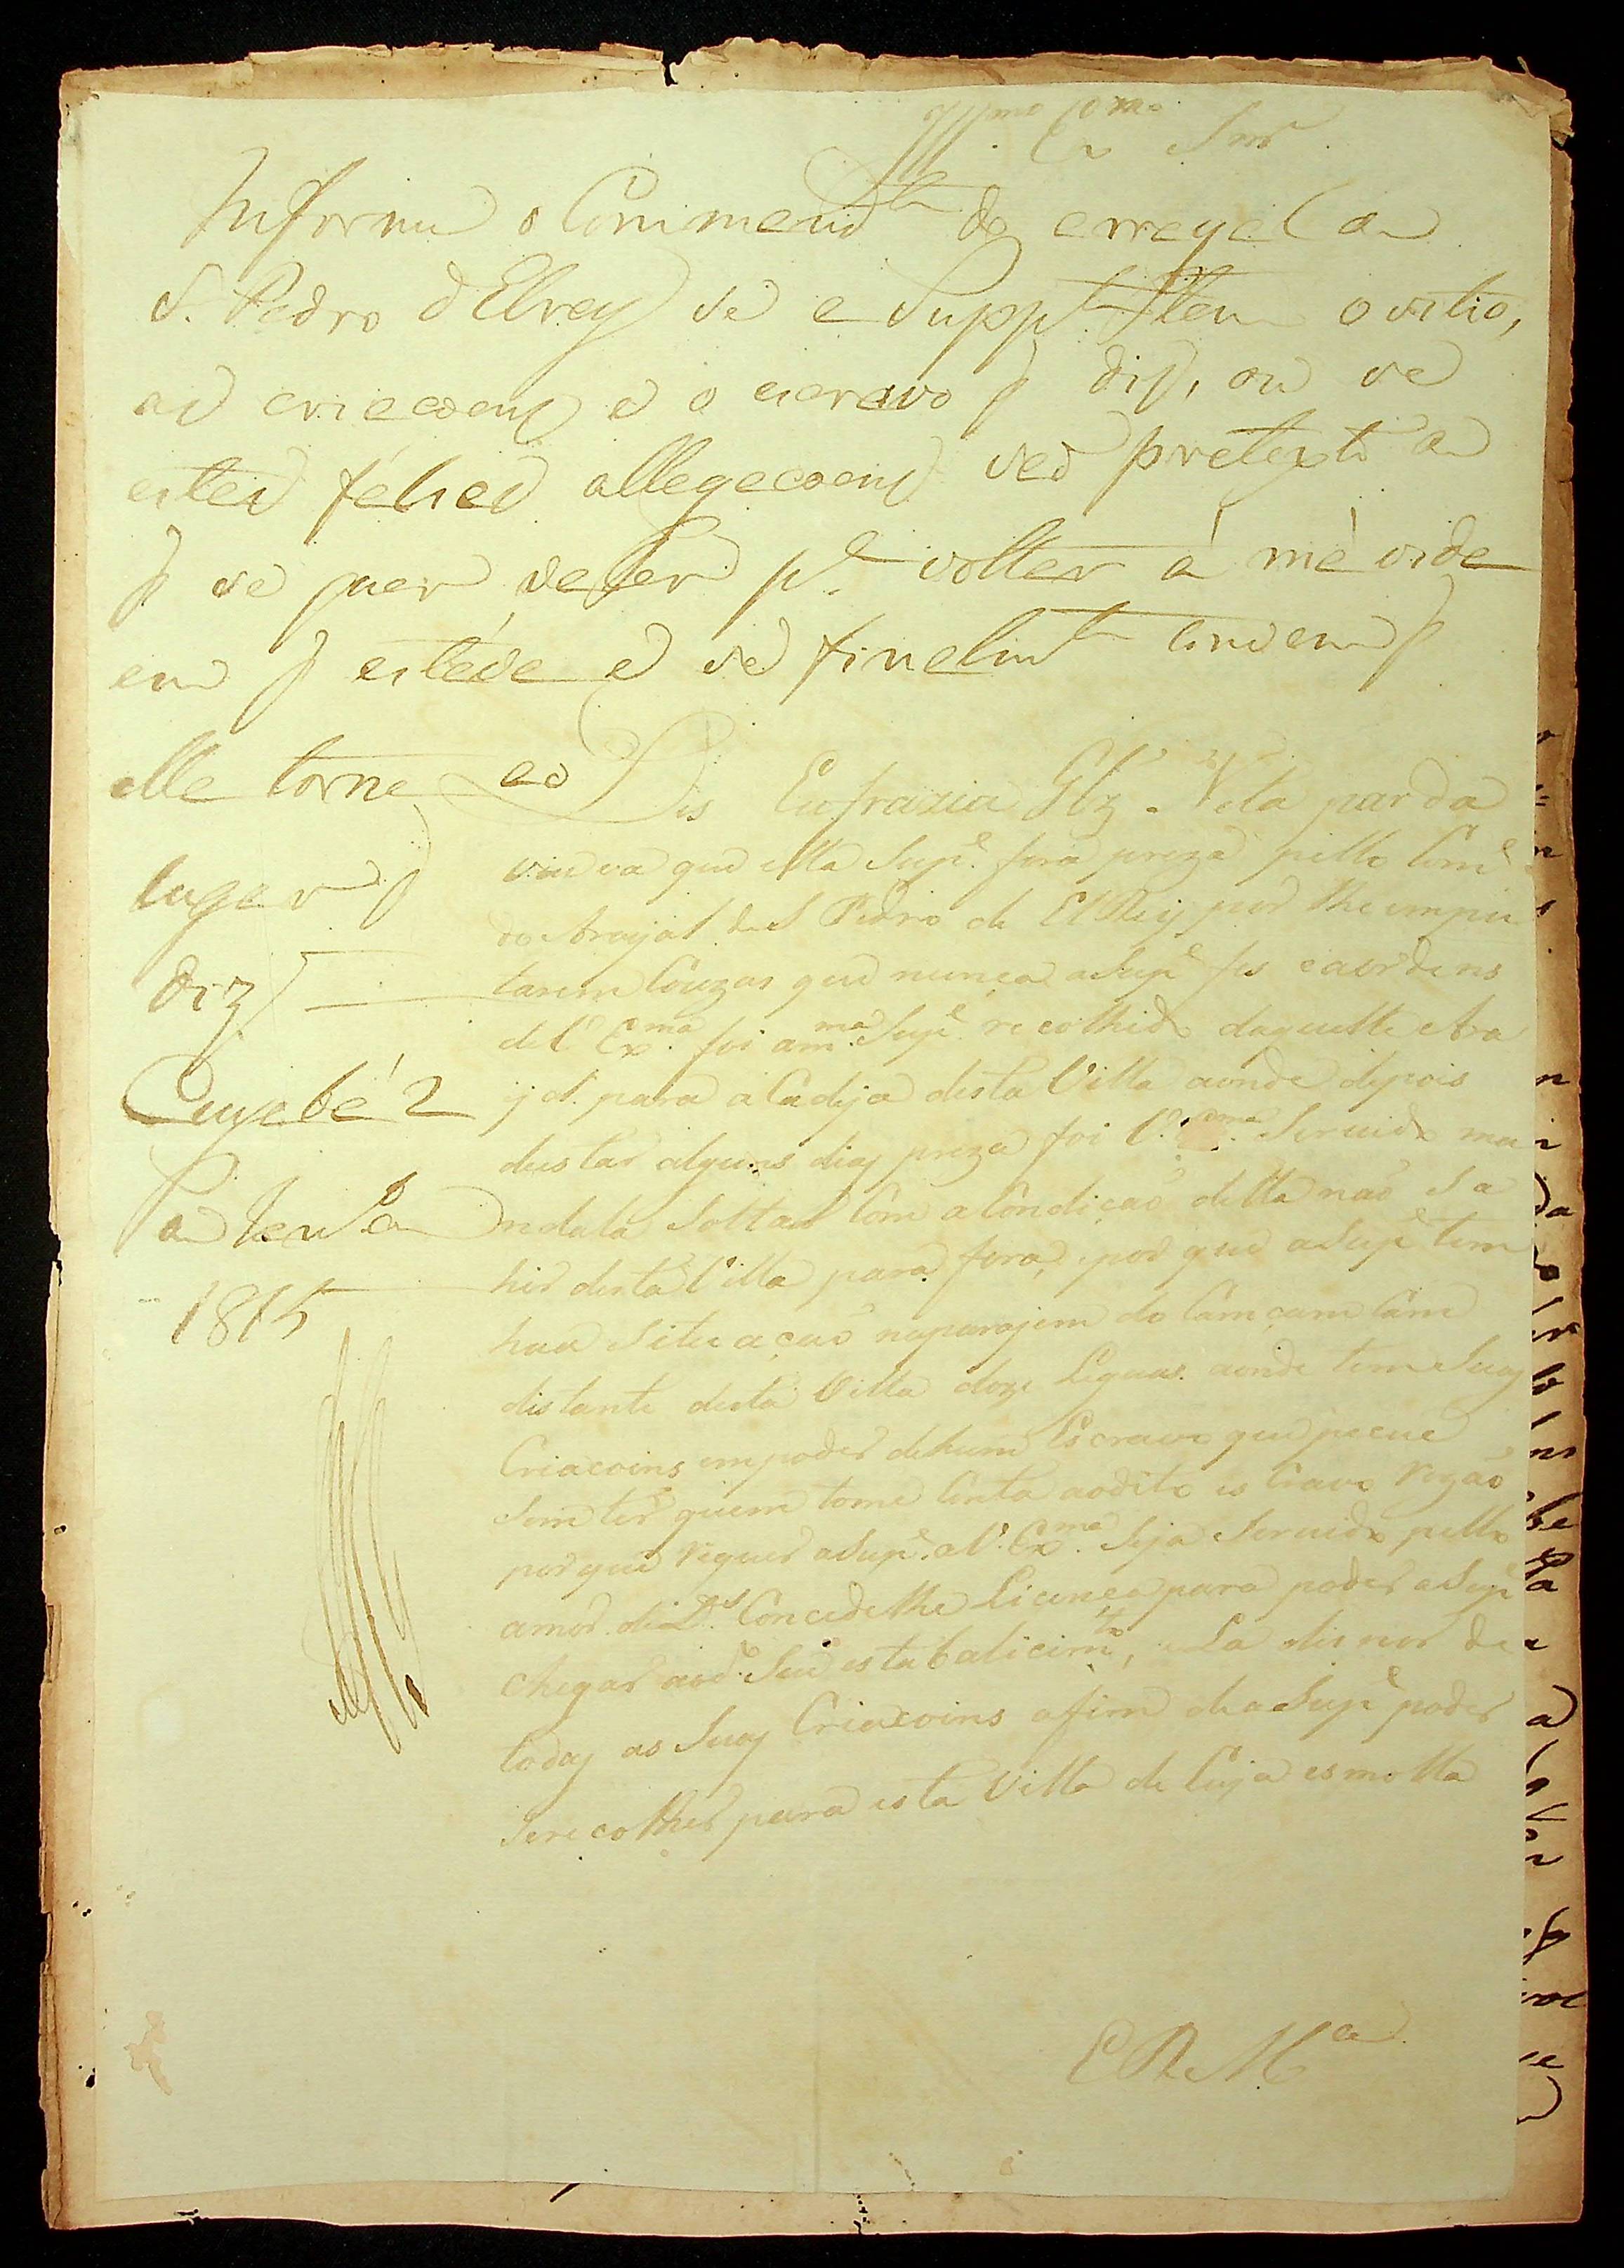 Ill.mo Ex.mo Snr
Informe o Commend.te do arrayal de
S. Pedro d'Elrey se a Supp.te tem o sitio,
as criacoens e o escravo q diz, ou se
estas falsas allegacoens sao pretexto de
q se quer valer p.a voltar á má vida
em q estáva e se finalm.te convem q
ella torne ao
lugar q
diz
Cuyabá 2
de
1815
Dis Eufrazia Glz. Vila parda
viuva que ella Sup.e fora preza pello Com.e
do Arayal de S Pedro de ElRey por lhe empu
tarem Couzas que nunca a Sup.e fes e a ordens
de V. Ex.ma foi a m.ma Sup.e recolhida daquelle Ara
yal. para a Cadeja desta Villa aonde depois
destar alguns dias preza foi V. Ex.ma Servido ma
ndala Soltar Com a Condiçaõ della naõ Sa
hir desta Villa para fora, por que a Sup.e tem
hua Situaçaõ naparajem do Camcam Cam
distante desta Villa doze Leguas. aonde tem Suas
Criacoins empoder dehum Escravo que pecue
Sem ter quem tome Conta aodito es Cravo Rezaõ
por que Requer a Sup.e a V. Ex.ma Seja Servido pello
amor de D.s Concedelhe Licença para poder a Sup.e
chegar aod.o Seu estabalicim.to, La despor de
todas as Suas Criacoins afim de a Sup.e poder
Serecolher para esta Villa de Cuja esmolla
E R M.ce